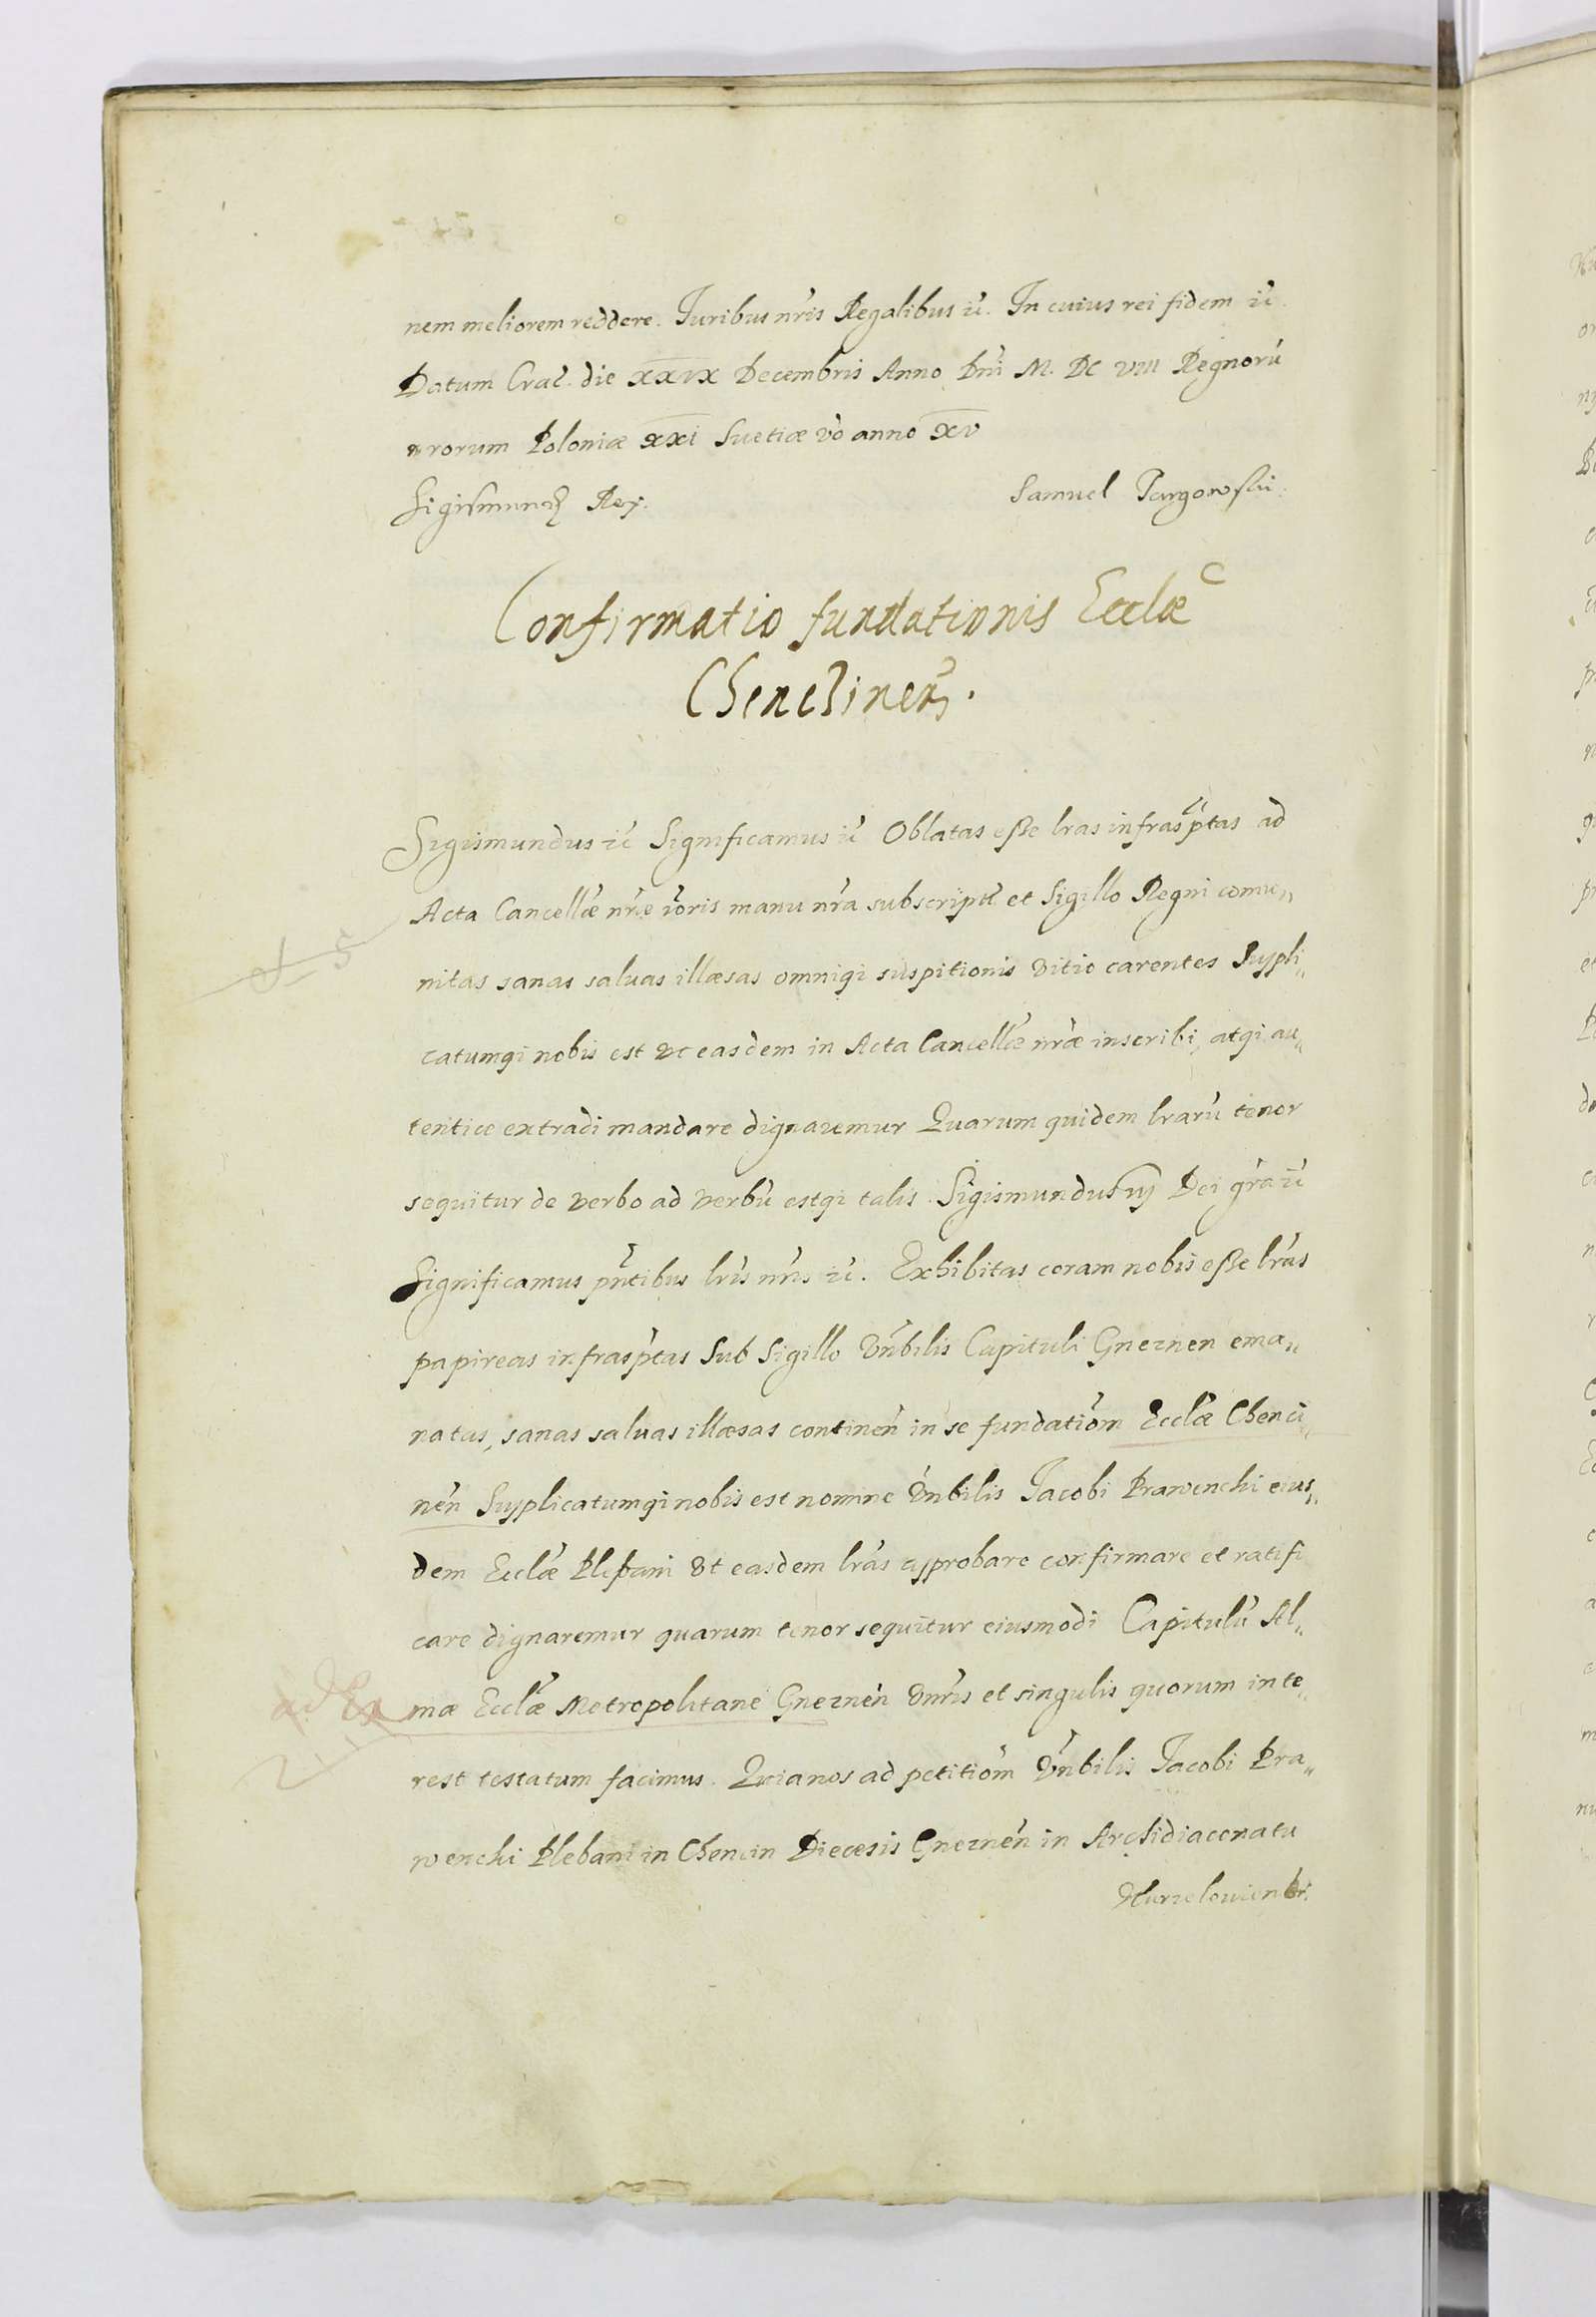 nem meliorem reddere. Iuribus nr̃is Regalibus ic̃. In cuius rei fidem ic̃.
Datum Crac̃. die XXIX Decembris Anno Dñi M. DC VIII Regnorũ
nrorum Poloniæ XXI Suetiæ vo anno XV
Sigismundꝯ Rex. Samuel Targowski
Confirmatio fundationis Ecclæ̃
Chencinen̄s.
Sigismundus ic̃ Significamus ic̃ Oblatas eße lras infrasp̃tas ad
Acta Cancellæ̃ nr̃æ ĩoris manu nr̃a subscript̃ et Sigillo Regni comu„
nitas sanas saluas illæsas omniqꝫ suspitionis vitio carentes Suppli„
catumqꝫ nobis est vt easdem in Acta Cancellæ̃ nr̃æ inscribi, atqꝫ au„
tentice extradi mandare dignaremur Quarum quidem lrarũ tenor
sequitur de verbo ad verbũ estqꝫ talis. Sigismundus iij Dei gr̃a ic̃
Significamus pñtibus lr̃is nr̃is ic̃. Exhibitas coram nobis eße lr̃as
papireas infrasp̃tas Sub Sigillo Vñbilis Capituli Gneznen ema„
natas, sanas saluas illæsas continen̄ in se fundatiõm Ecclæ̃ Chenci„
nen̄ Supplicatumqꝫ nobis est nomine Vñbilis Iacobi Prawenchi eius„
dem Ecclæ̃ Plebani vt easdem lr̃as approbare confirmare et ratifi
care dignaremur quarum tenor sequitur eiusmodi Capitulũ Al„
mæ Ecclæ̃ Metropolitane Gneznen̄ Vnĩrs et singulis quorum inte„
rest testatum facimus. Quia nos ad petitiõm Vñbilis Iacobi Pra„
wenchi Plebani in Chencin Diecesis Gneznen̄ in Archidiaconatu